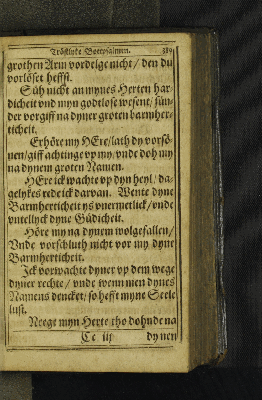 Tröstlyke Boetpsalmen. 389
grothen Arm vordelge nicht / den du
vorlöset heffst.
Süh nicht an mynes Herten har-
dicheit vnd myn godtlose wesent / sün-
der vorgiff na dyner groten barmher-
ticheit.
Erhöre my HEre / lath dy vorsö-
nen / giff achtinge vp my / vnde doh my
na dynem groten Namen.
HEre ick wachte vp dyn heyl / da-
gelykes rede ick darvan. Wente dyne
Barmherticheit ys vnermetlick / vnde
vntellyck dyne Güdicheit.
Höre my na dynem wolgefallen /
Vnde vorschluth nicht vor my dyne
Barmherticheit.
Ick vorwachte dyner vp dem wege
dyner rechte / vnde wenn men dynes
Namens dencket / so hefft myne Seele
lust.
Neege myn Herte tho dohnde na
Cc iij dynen